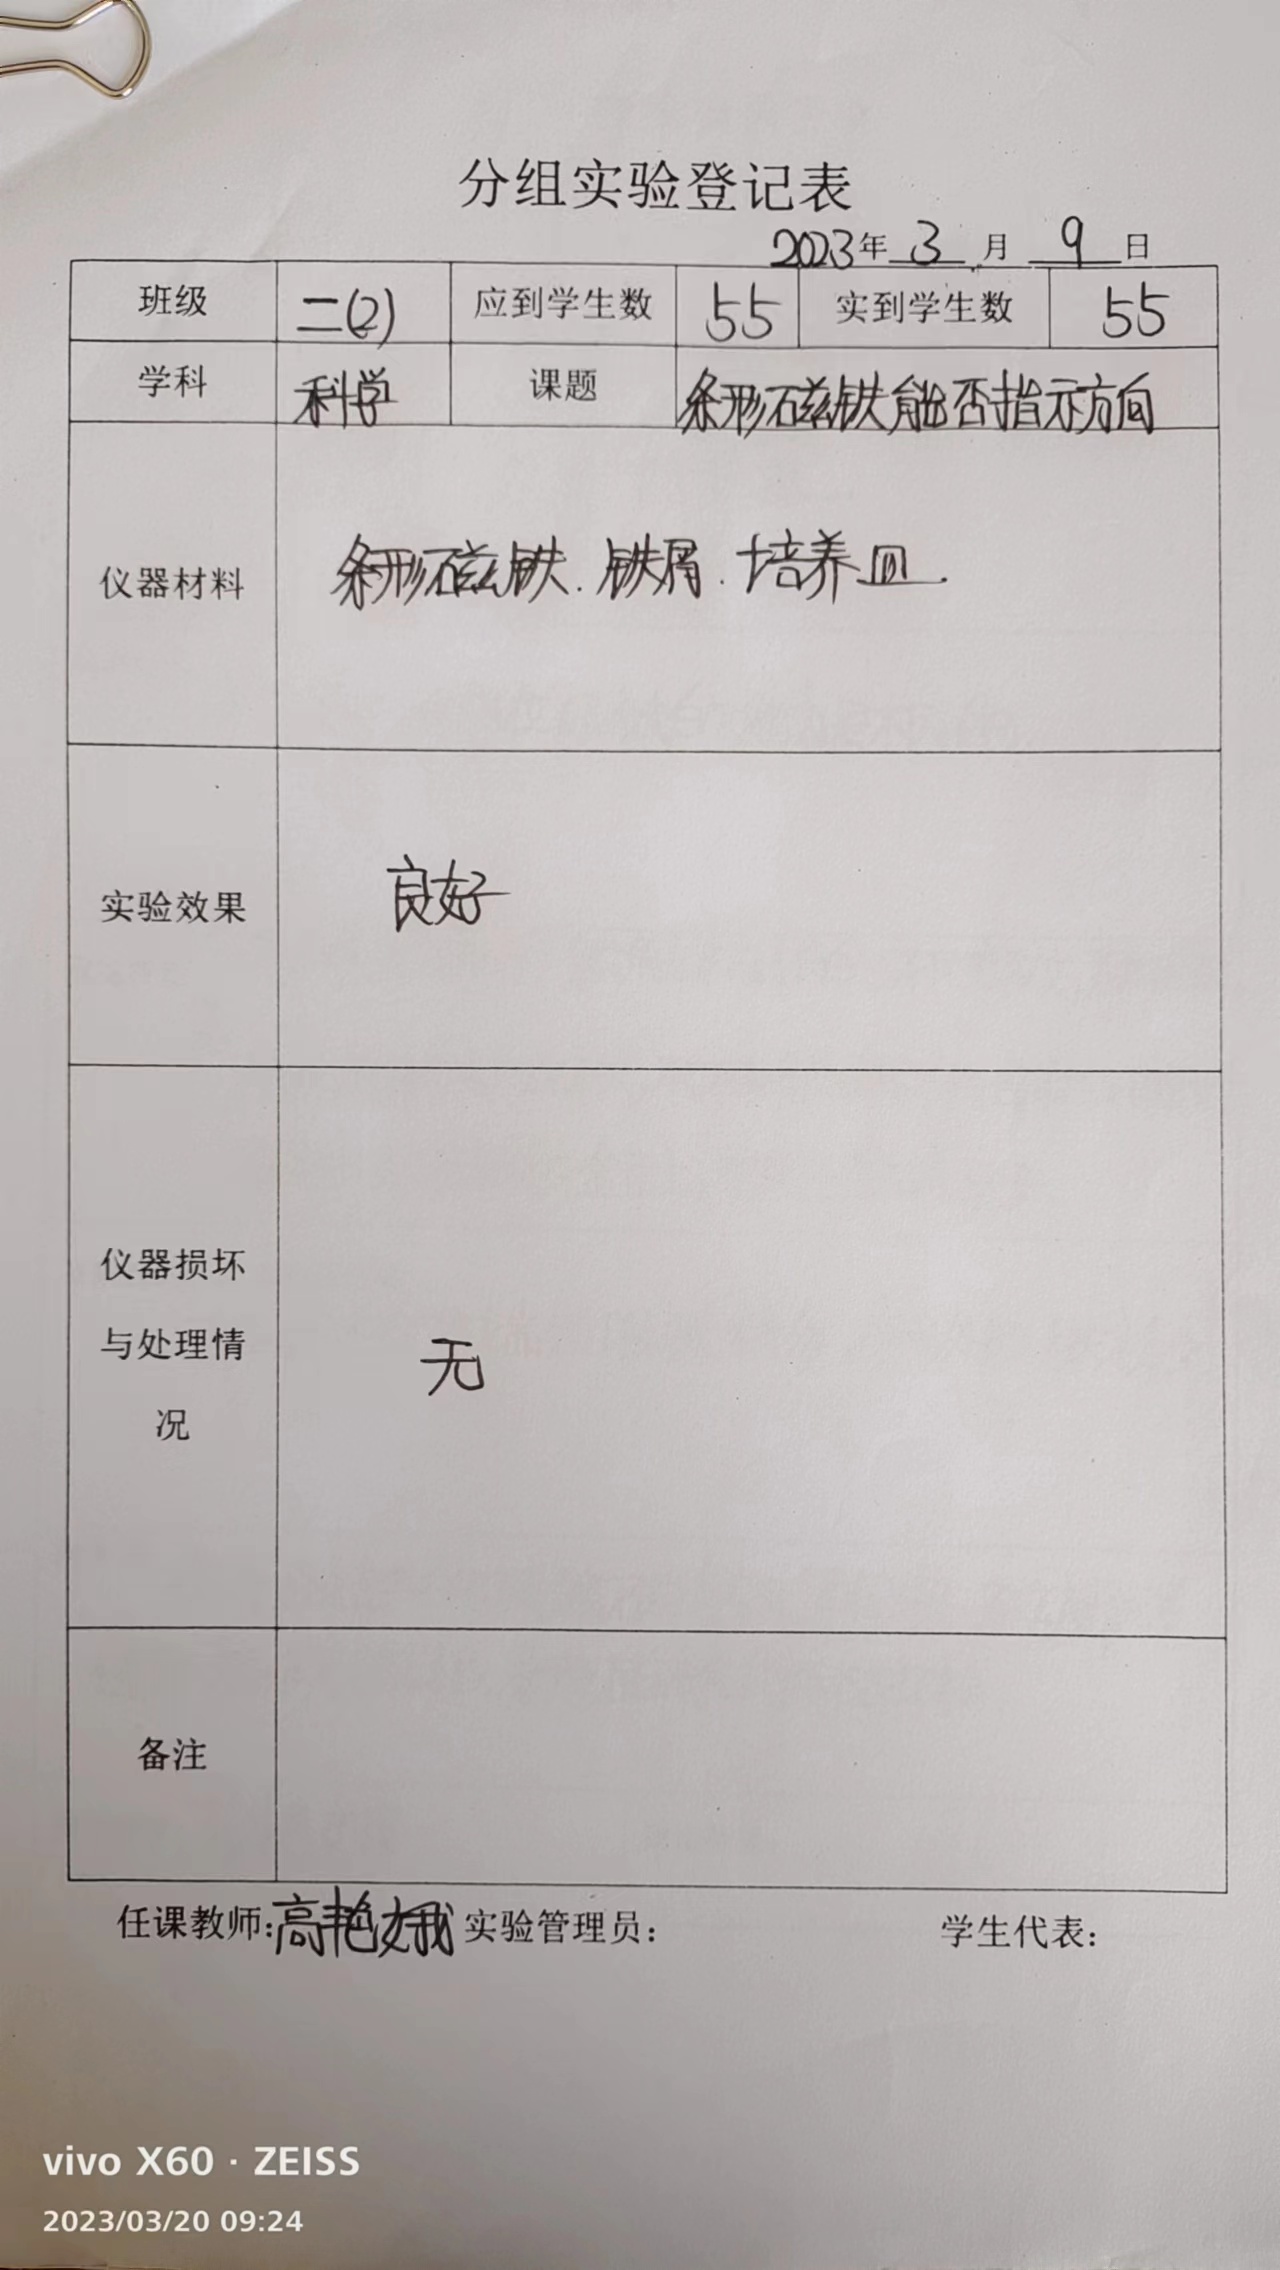 分组实验登记表
2023年 3 月 9 日
班级 二(2) 应到学生数 55 实到学生数 55
学科 科学 课题 条形磁铁能否指示方向
仪器材料 条形磁铁.铁屑.培养皿.
实验效果 良好
仪器损坏
与处理情
况
无
备注
任课教师:高艳娥 实验管理员: 学生代表:
vivo X60 · ZEISS
2023/03/20 09:24